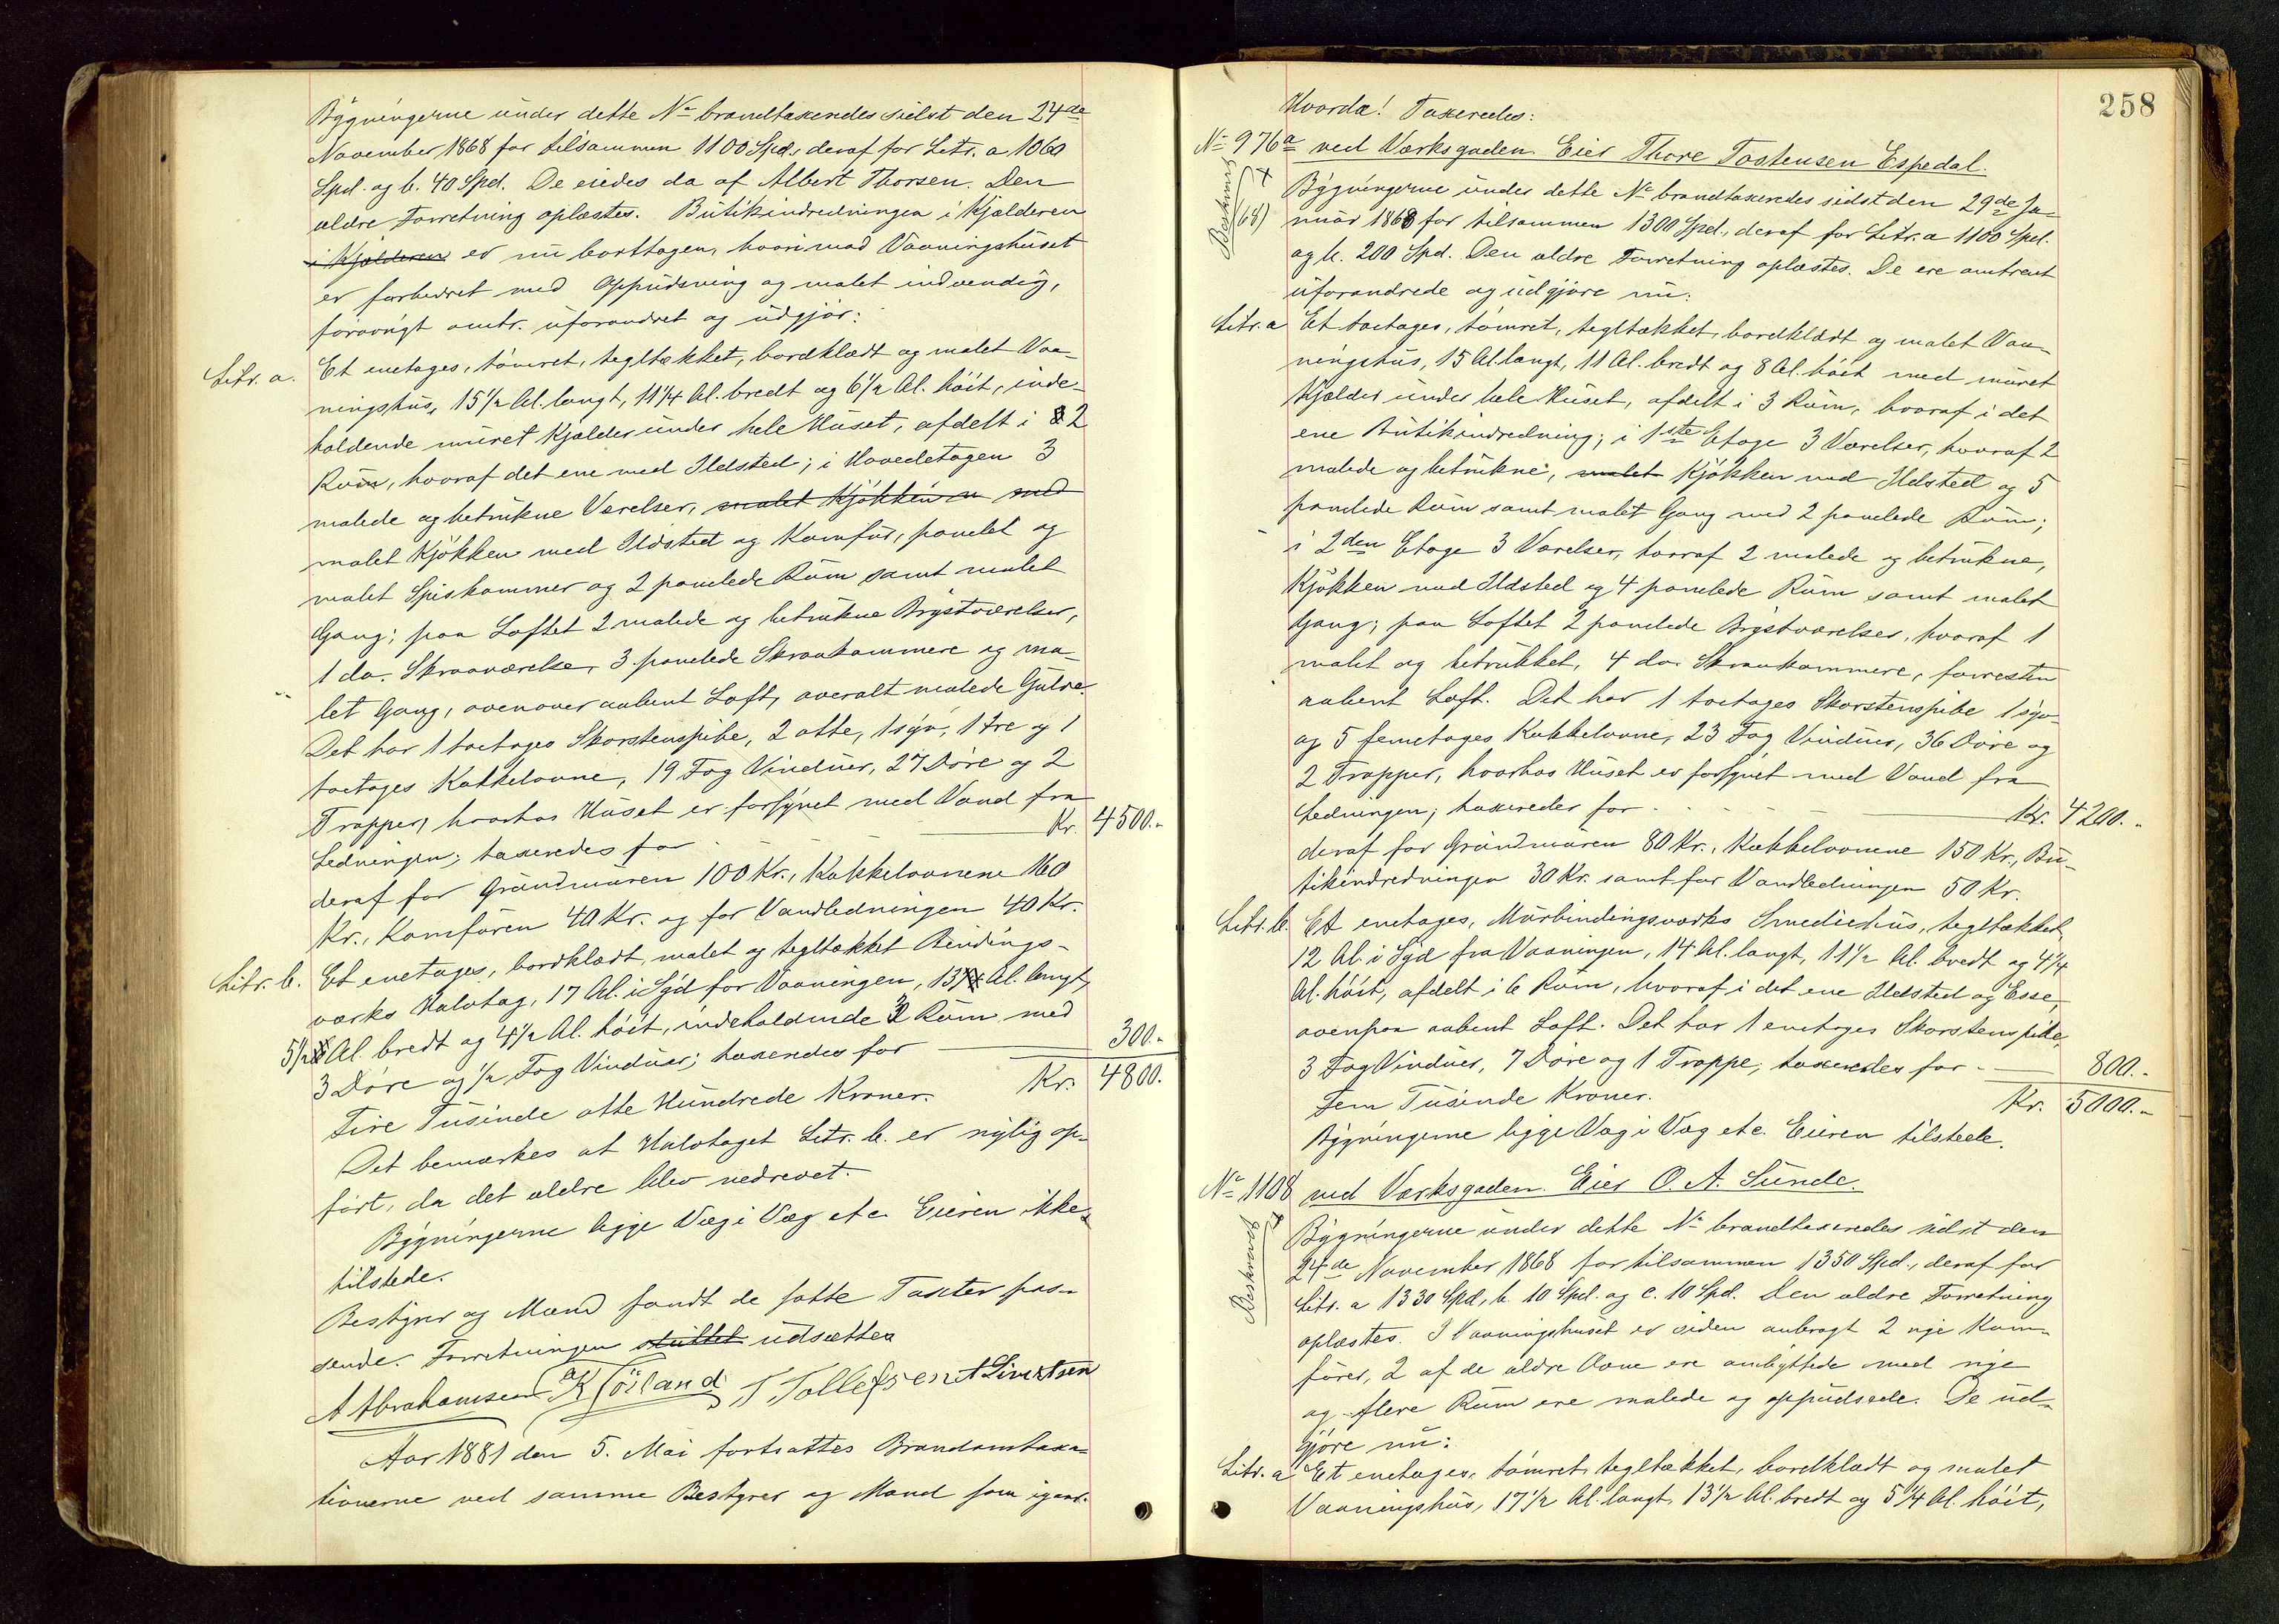 Bygningerne under dette No brandtaxeredes sidst den 24de
November 1868 for tilsammen 1100 Spd., deraf for Litr. a 1060
Spd. og b. 40 Spd. De eiedes da af Albert Thorsen. Den
ældre Forretning oplæstes. Butikindredningen i Kjælderen
i Kjælderen er nu borttagen, hvorimod Vaaningshuset
er forbedret med Oppudsning og malet indvendig,
forøvrigt omtr. uforandret og udgjør:
Litr. a. Et enetages, tømret, tegltækket, bordklædt og malet Vaa-
ningshus, 15 1/2 Al. langt, 11 1/4 Al. bredt og 6 1/2 Al. høit, inde-
holdende muret Kjælder under hele Huset, afdelt i 2
Rum, hvoraf det ene med Ildsted; i Hovedetagen 3
malede og betrukne Værelser, malet Kjøkken med
malet Kjøkken med Ildsted og Komfur, panelet og
malet Spiskammer og 2 panelede Rum samt malet
Gang; paa Loftet 2 malede og betrukne Brystværelser,
1 do. Skraaværelse, 3 panelede Skraakammere og ma-
let Gang, ovenover aabent Loft, overalt malede Gulve.
Det har 1 toetages Skorstenspibe, 2 otte, 1 syv, 1 tre og 1
toetages Kakkelovne, 19 Fag Vinduer, 27 Døre og 2
Trapper, hvorhos Huset er forsynet med Vand fra
Ledningen; taxeredes for Kr. 4500.-
deraf for Grundmuren 100 Kr., Kakkelovnene 160
Kr., Komfuren 40 Kr. og for Vandledningen 40 Kr.
Litr. b. Et enetages, bordklædt, malet og tegltækket Bindings-
værks Halvtag, 17 Al. i Syd for Vaaningen, 13 Al. langt,
5 1/2 Al. bredt og 4 1/2 Al. høit, indeholdende 3 Rum med
3 Døre og 1/2 Fag Vinduer; taxeredes for 300.-
Fire Tusinde otte Hundrede Kroner. Kr. 4800.
Det bemærkes at Halvtaget Litr. b. er nylig op-
ført, da det ældre blev nedrevet.
Bygningerne ligge Væg i Væg etc. Eieren ikke
tilstede.
Bestyrer og Mænd fandt de satte Taxter pas-
sende. Forretningen sluttet udsættes
A Abrahamsen K Jösland T Tollefsen A Sivertsen
Aar 1881 den 5. Mai fortsattes Brandomtaxa-
tionerne ved samme Bestyrer og Mænd som igaar.
258
Hvorda! Taxeredes:
No 976a ved Værksgaden. Eier Thore Tostensen Espedal.
Bygningerne under dette No brandtaxeredes sidst den 29de Ja-
Beskrevet
(68)
nuar 1868 for tilsammen 1300 Spd., deraf for Litr. a 1100 Spd.
og b. 200 Spd. Den ældre Forretning oplæstes. De ere omtrent
uforandrede og udgjøre nu:
Litr. a Et toetages, tømret, tegltækket, bordklædt og malet Vaa-
ningshus, 15 Al. langt, 11 Al. bredt og 8 Al. høit med muret
Kjælder under hele Huset, afdelt i 3 Rum, hvoraf i det
ene Butikindredning; i 1ste Etage 3 Værelser, hvoraf 2
malede og betrukne, malet Kjøkken med Ildsted og 5
panelede Rum samt malet Gang med 2 panelede Rum;
i 2den Etage 3 Værelser, hvoraf 2 malede og betrukne,
Kjøkken med Ildsted og 4 panelede Rum samt malet
Gang; paa Loftet 2 panelede Brystværelser, hvoraf 1
malet og betrukket, 4 do. Skraakammere, forresten
aabent Loft. Det har 1 toetages Skorstenspibe 1 syv
og 5 femetages Kakkelovne, 23 Fag Vinduer, 36 Døre og
2 Trapper, hvorhos Huset er forsynet med Vand fra
Ledningen; taxeredes for Kr. 4200.-
deraf for Grundmuren 80 Kr., Kakkelovnene 150 Kr., Bu-
tikindredningen 30 Kr. samt for Vandledningen 50 Kr.
Litr. b. Et enetages, Murbindingsværks Smediehus, tegltækket,
12 Al. i Syd fra Vaaningen, 14 Al. langt, 11 1/2 Al. bredt og 4 1/4
Al. høit, afdelt i 6 Rum, hvoraf i det ene Ildsted og Esse,
ovenpaa aabent Loft. Det har 1 enetages Skorstenspibe,
3 Fag Vinduer, 7 Døre og 1 Trappe; taxeredes for 800.-
Fem Tusinde Kroner. Kr. 5000.-
Bygningerne ligge Væg i Væg etc. Eieren tilstede.
No 1108 ved Værksgaden. Eier O. A. Sunde.
Beskrevet
Bygningerne under dette No brandtaxeredes sidst den
24de November 1868 for tilsammen 1350 Spd., deraf for
Litr. a 1330 Spd., b. 10 Spd. og c. 10 Spd. Den ældre Forretning
oplæstes. I Vaaningshuset er siden anbragt 2 nye Kom-
furer, 2 af de ældre Ovne ere ombyttede med nye
og flere Rum ere malede og oppudsede. De ud-
gjøre nu:
Litr. a Et enetages, tømret, tegltækket, bordklædt og malet
Vaaningshus, 17 1/2 Al. langt, 13 1/2 Al. bredt og 5 1/4 Al. høit,